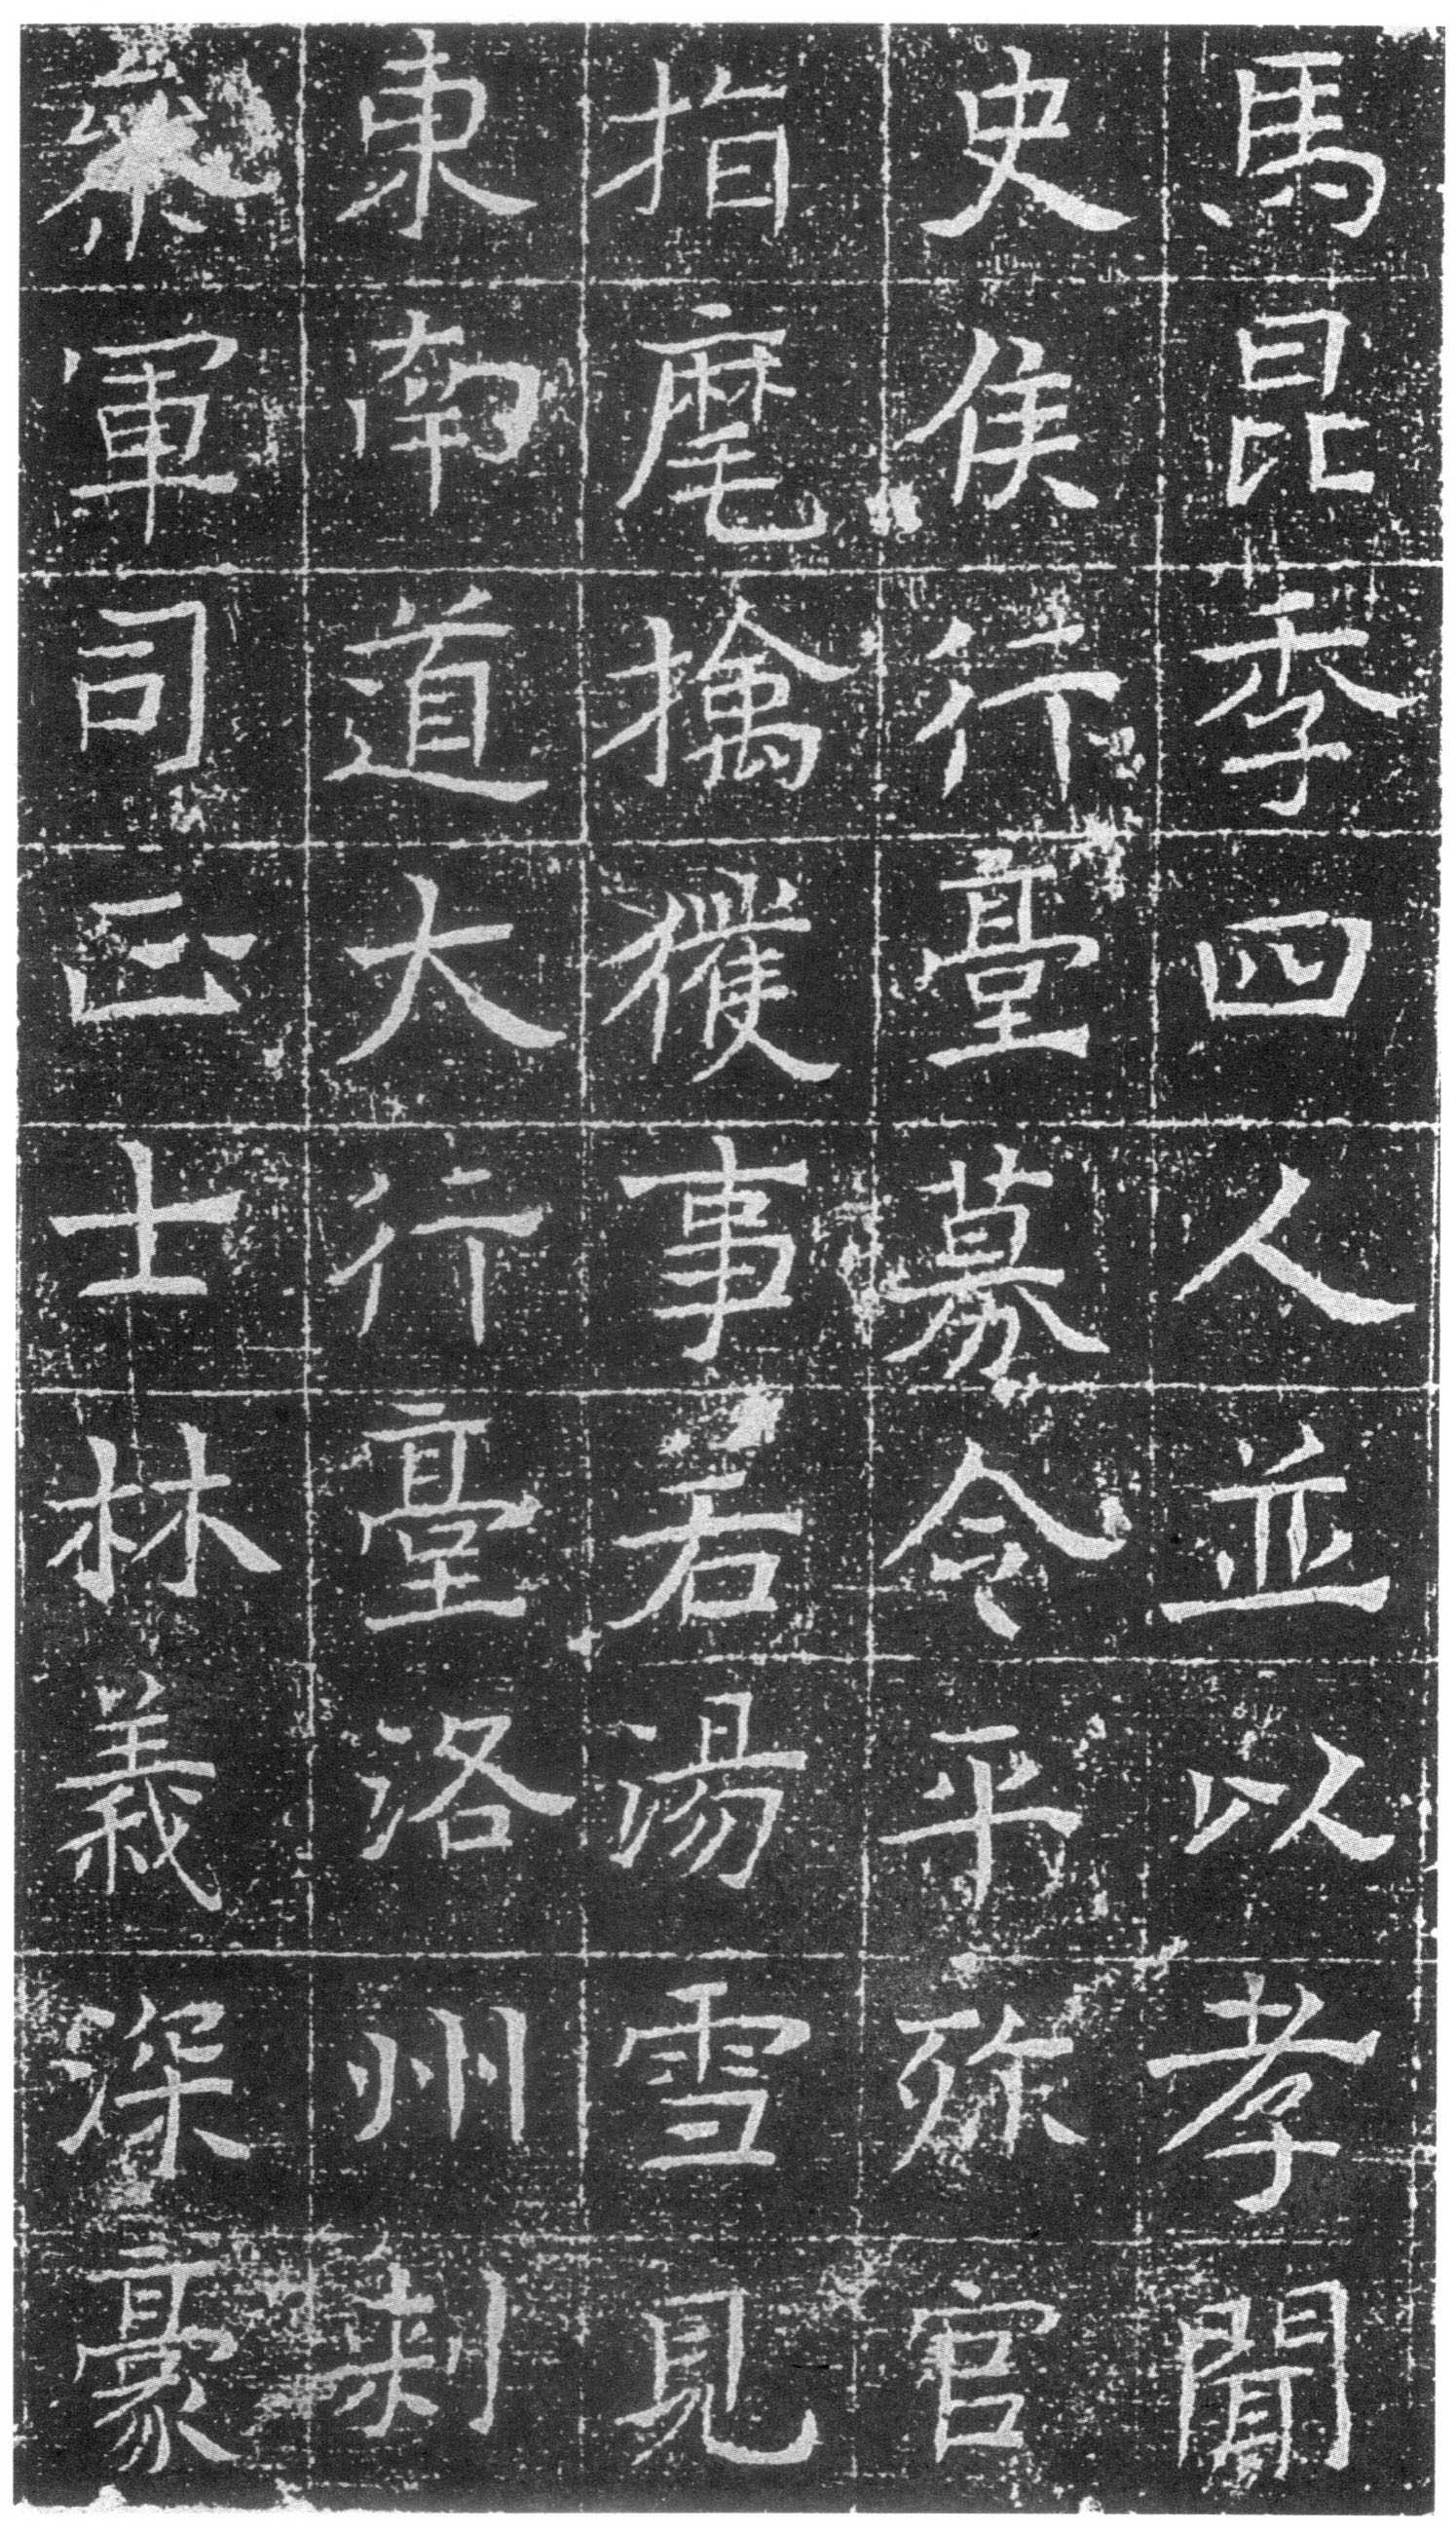 馬昆季四人並以孝聞
史侯行臺募令平殄官
指麾擒獲事若湯雪見
東南道大行臺洛州刺
參軍司正士林義深豪